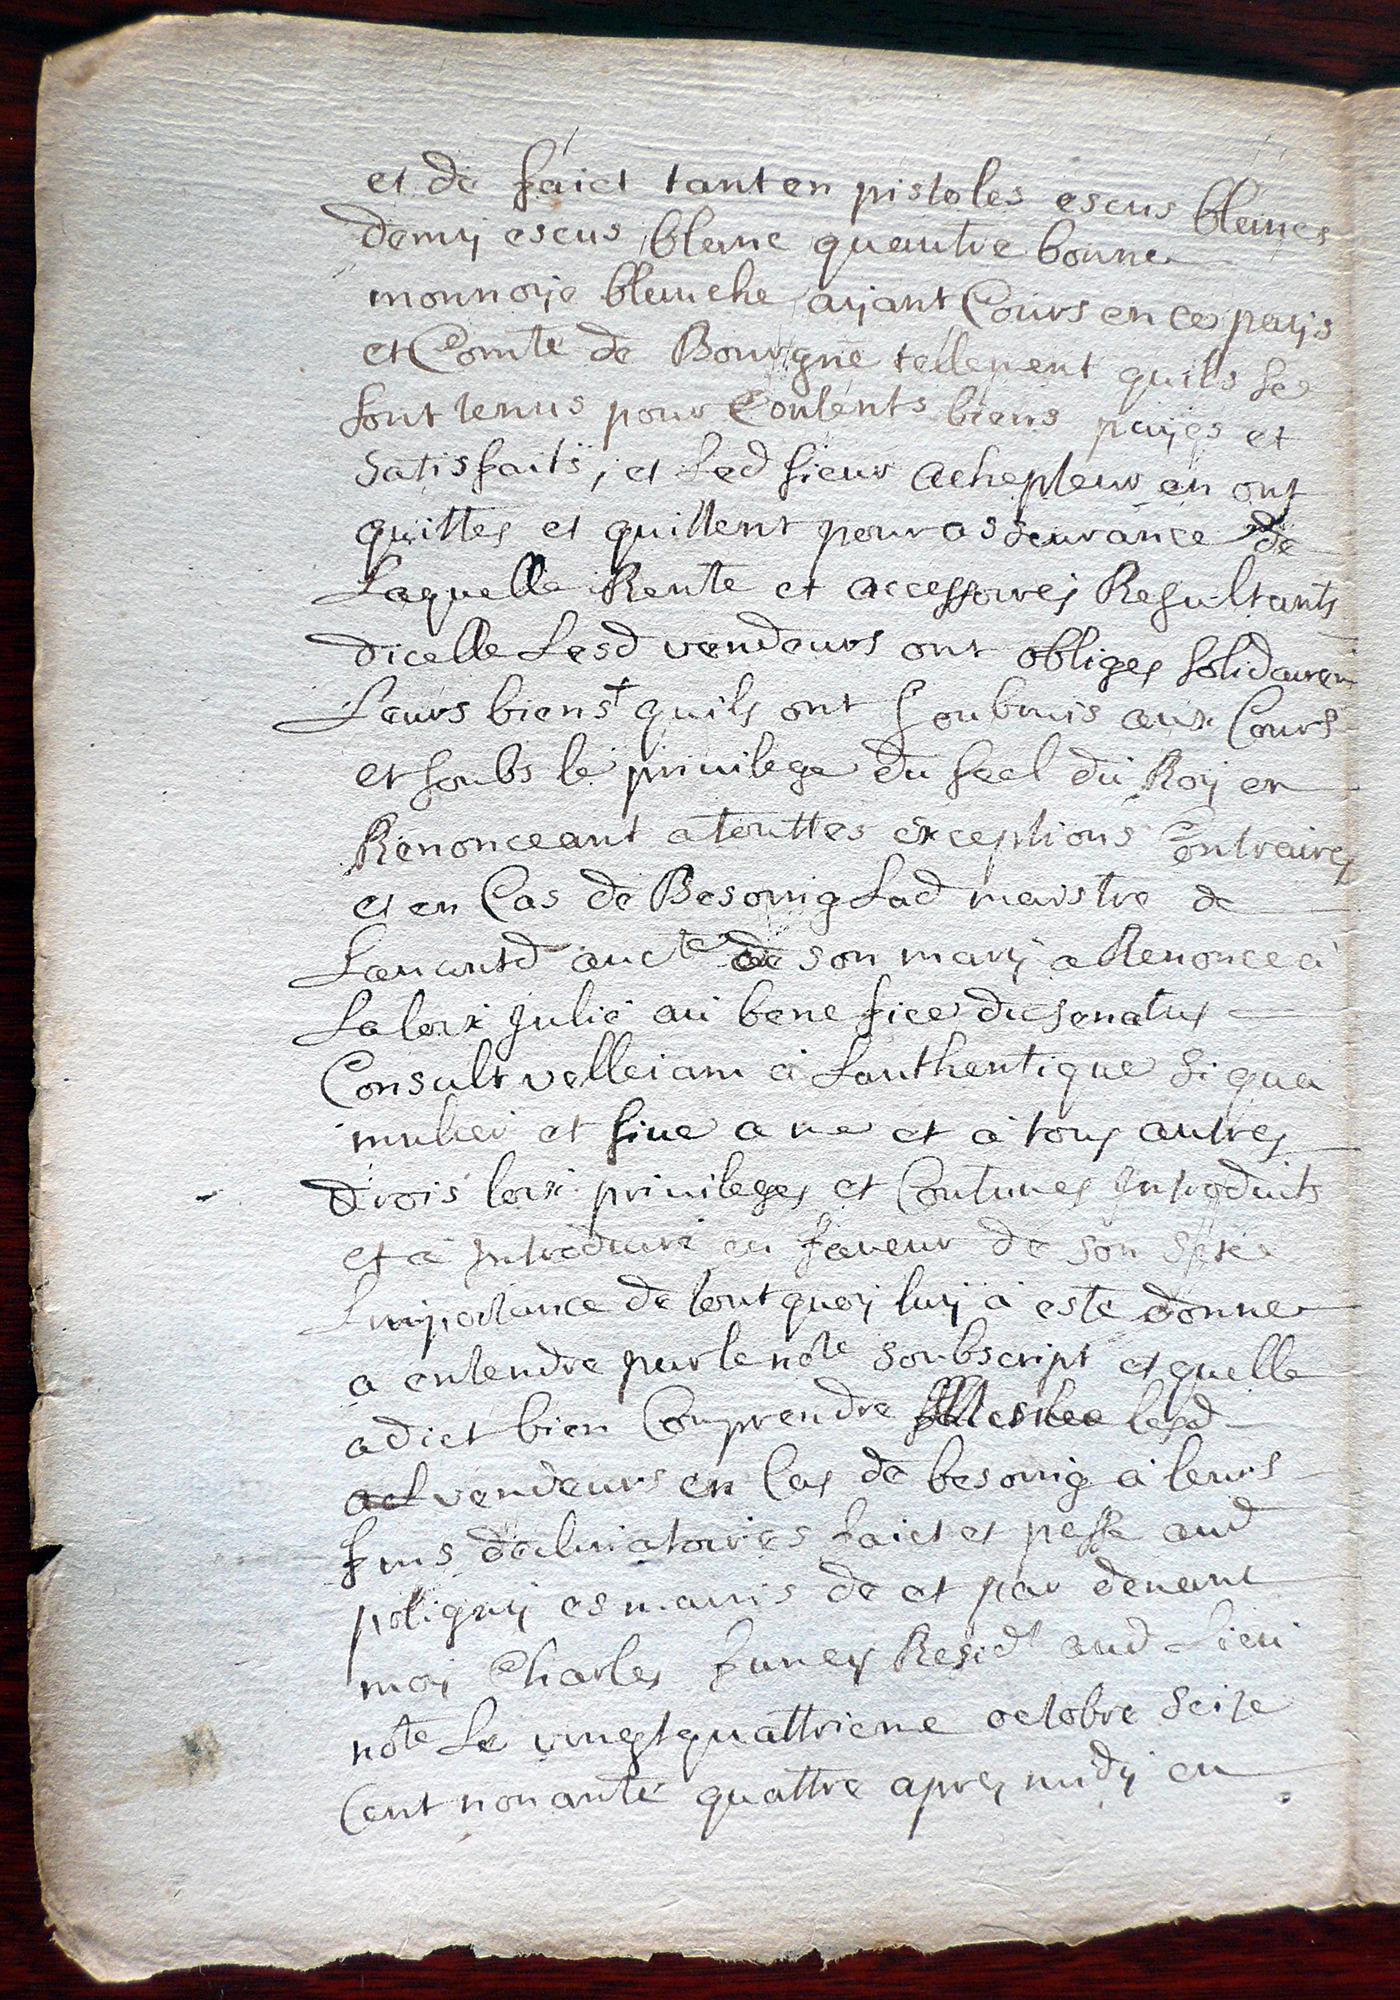 et de faict tant en pistoles escus blancs
demy escus blanc quautre bonne
monnoye blanche ayant Cours en ce pays
et Comte de Bourgne tellement quils se
sont tenus pour Contents biens payes et
Satisfaits, et Led sieur achepteur en ont
quittes et quittent pour asseurance de
Laquelle Rente et accessoires Resultants
dicelle Lesd vendeurs ont obliges solidairem
Leurs biens † quils ont soubmis aux Cours
et soubs le priuilege du seel du Roy en
Renonceant a touttes exceptions Contraires
et en Cas de Besoing Lad maistre de
Lauantd aucte de son mary a Renonce a
La loix Julie au benefice du senatus
Consult velleiam a Lauthentique si qua
mulier et siue a me et a tous autres
drois loix priuileges et Coutumes Introduits
et a Introduire en faueur de son sexe
Limportance de tout quoy luy a este donne
a entendre par le note soubscript et quelle
a dict bien Comprendre lesd
vendeurs en Cas de besoing a leurs
fins declinatoires faict et passe aud
poligny es mains de et par deuant
moy Charles Juney Resid aud Lieu
note Le vingt quattrieme octobre seize
Cent nonante quattre apres midy en